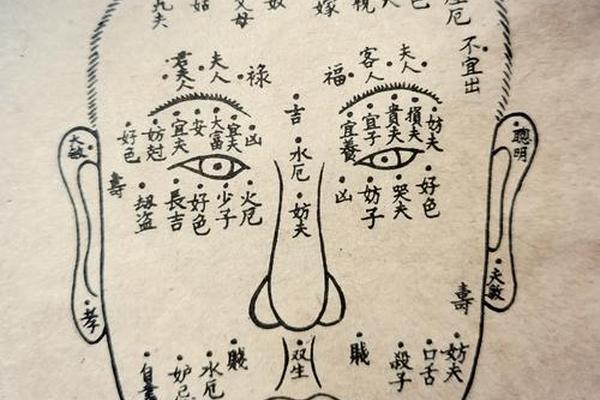 父母
奴
嫁
厄
不宜出
君夫人
夫人
祿
福
客人
夫人
吉
好色
妨尅
宜夫
安
大富
宜夫
凶
宜養
宜子
貴夫
損夫
妨夫
大敏
聰明
水厄
壽
劫盜
長吉
好色
少子
火厄
妨夫
凶
妨子
哭夫
好色
孝
夫敏
壽
水厄
賊
双生
賊
殺子
口舌
妨夫